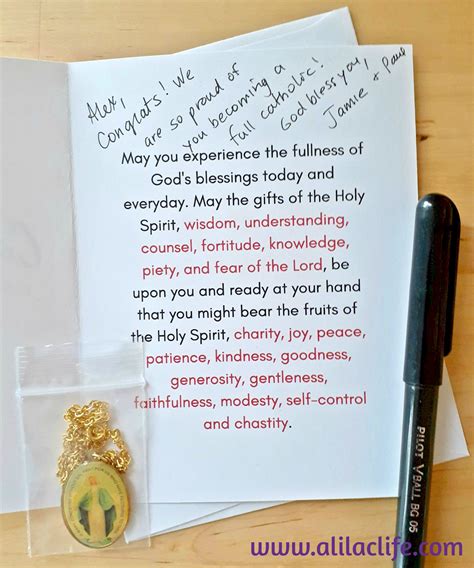 Alex,
Congrats! We
are so proud of
you becoming a
full catholic!
God bless you,
Jamie + Paul
May you experience the fullness of
God's blessings today and
everyday. May the gifts of the Holy
Spirit, wisdom, understanding,
counsel, fortitude, knowledge,
piety, and fear of the Lord, be
upon you and ready at your hand
that you might bear the fruits of
the Holy Spirit, charity, joy, peace,
patience, kindness, goodness,
generosity, gentleness,
faithfulness, modesty, self-control
and chastity.
PILOT VBALL BG 05
www.alilaclife.com